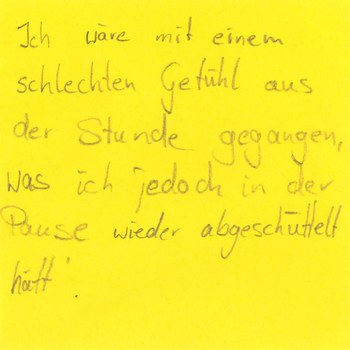 Ich wäre mit einem
schlechten Gefühl aus
der Stunde gegangen,
was ich jedoch in der
Pause wieder abgeschüttelt
hätt'.